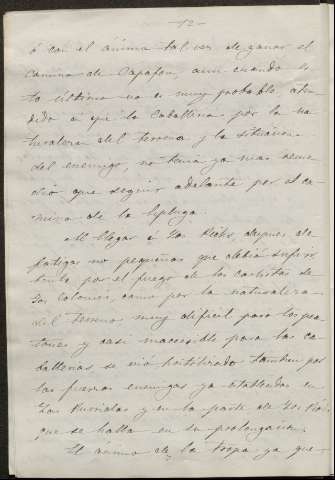 -12-
ó con el ánimo tal vez de ganar el
camino de Capafon, aun cuando es
to último no es muy probable, aten
dido á que la caballeria por la na
turaleza del terreno y la situacion
del enemigo, no tenia ya mas reme
dio que seguir adelante por el ca
mino de la Espluga.
Al llegar á Los Rióts, despues de
fatigas no pequeñas que debia sufrir
tanto por el fuego de los carlistas de
Las Colomas, como por la naturaleza
del terreno muy dificil para los pea
tones y casi inaccesible para las ca
ballerias se vió hostilizado tambien por
las fuerzas enemigas ya establecidas en
Las y en la parte de Los Rióts
que se halla en su prolongacion.
El ánimo de la tropa ya que